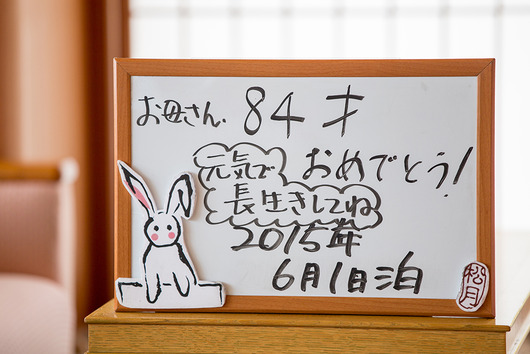 お母さん 84才
元気で おめでとう!
長生きしてね
2015年
6月1日泊
松月